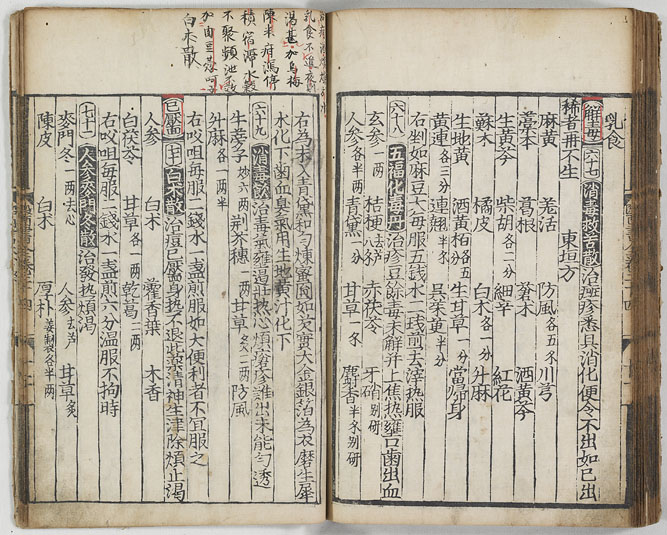 乳食
解毒 六十七 消毒救苦散治癍疹悉具消化便令不出如已出
稀者再不生 東垣方
麻黃 羌活 防風各五分 川芎
藁本 葛根 蒼朮 酒黃芩
生黃芩 柴胡各二分 細辛 紅花
蘇木 橘皮 白朮各一分 升麻
生地黃 酒黃栢各五分 生甘草一分 當歸身
黃連各三分 連翹半分 吳茱萸半分
右剉如麻豆大每服五錢水二 前去滓热服
六十八 五福化毒丹治疹豆餘毒未解并上焦热壅口齒出血
玄參一兩 桔梗去芦 赤茯苓 牙硝別研
人連各半兩 青黛一分 甘草一分 麝香半分別研
乳食不進
湯 加烏梅
陳米
積宿滯水穀
不聚頻
加肉豆蔻 訶
白朮散
右為末入青黛和勻煉蜜圓如芡實大金銀治為衣磨生犀
水化下齒血臭氣用生地黃汁化下
六十九 消毒散治毒氣壅遏壯热心煩瘡疹雖出未能勻透
牛蒡子炒六兩 荊芥穗一兩 甘草二兩 防風
升麻各一兩半
右㕮咀每服二錢水一盞煎服如大便利者不宜服之
已靨 七十 白朮散治痘已靨身热不退此藥清神生津除煩止渴
人參 白朮 藿香葉 木香
白茯苓 甘草各一兩 乾葛二兩
右㕮咀每服二錢水一盞煎六分溫服不拘時
七十一 人參麥門冬散治發热煩渴
麥門冬一兩去心 人參去芦 甘草炙
陳皮 白朮 厚朴姜製各半兩